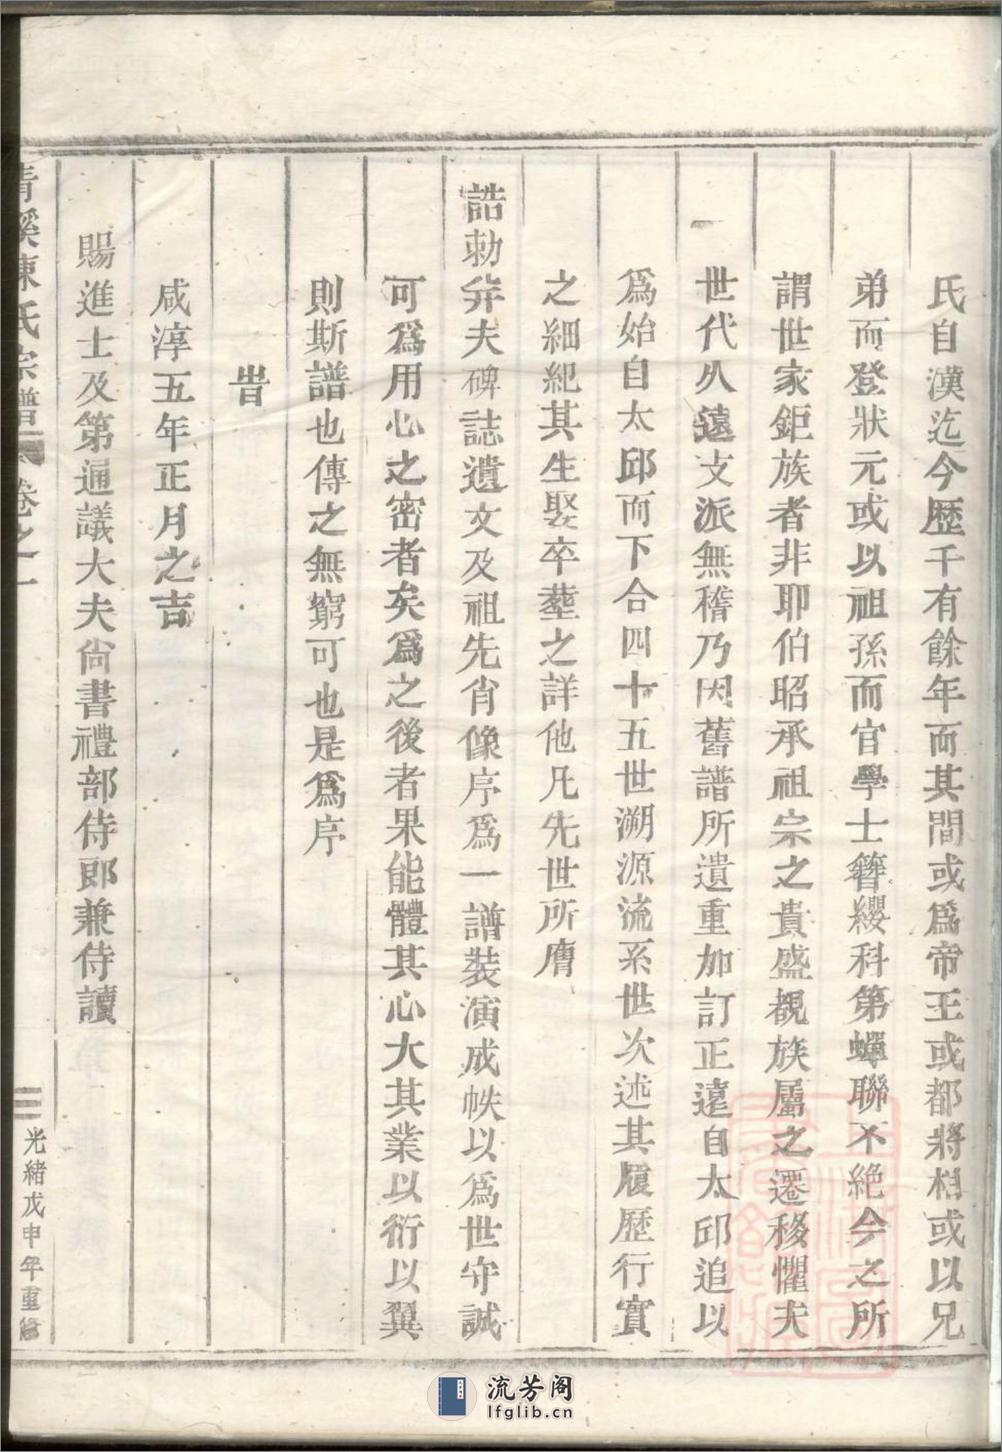 氏自漢迄今歷千有餘年而其間或爲帝王或都將相或以兄
弟而登狀元或以祖孫而官學士簪纓科第蟬聯不絕今之所
謂世家鉅族者非耶伯昭承祖宗之貴盛覩族屬之遷移懼夫
世代久遠支派無稽乃因舊譜所遺重加訂正遠自太邱追以
爲始自太邱而下合四十五世溯源流系世次述其履歷行實
之細紀其生娶卒塟之詳他凡先世所膺
誥勅弁夫碑誌遺文及祖先肖像序爲一譜裝演成帙以爲世守誠
可爲用心之密者矣爲之後者果能體其心大其業以衍以翼
則斯譜也傳之無窮可也是爲序
旹
咸淳五年正月之吉
賜進士及第通議大夫尙書禮部侍郎兼侍讀
青溪陳氏宗譜 卷之一
三 光緒戊申年重修
流芳阁
lfglib.cn